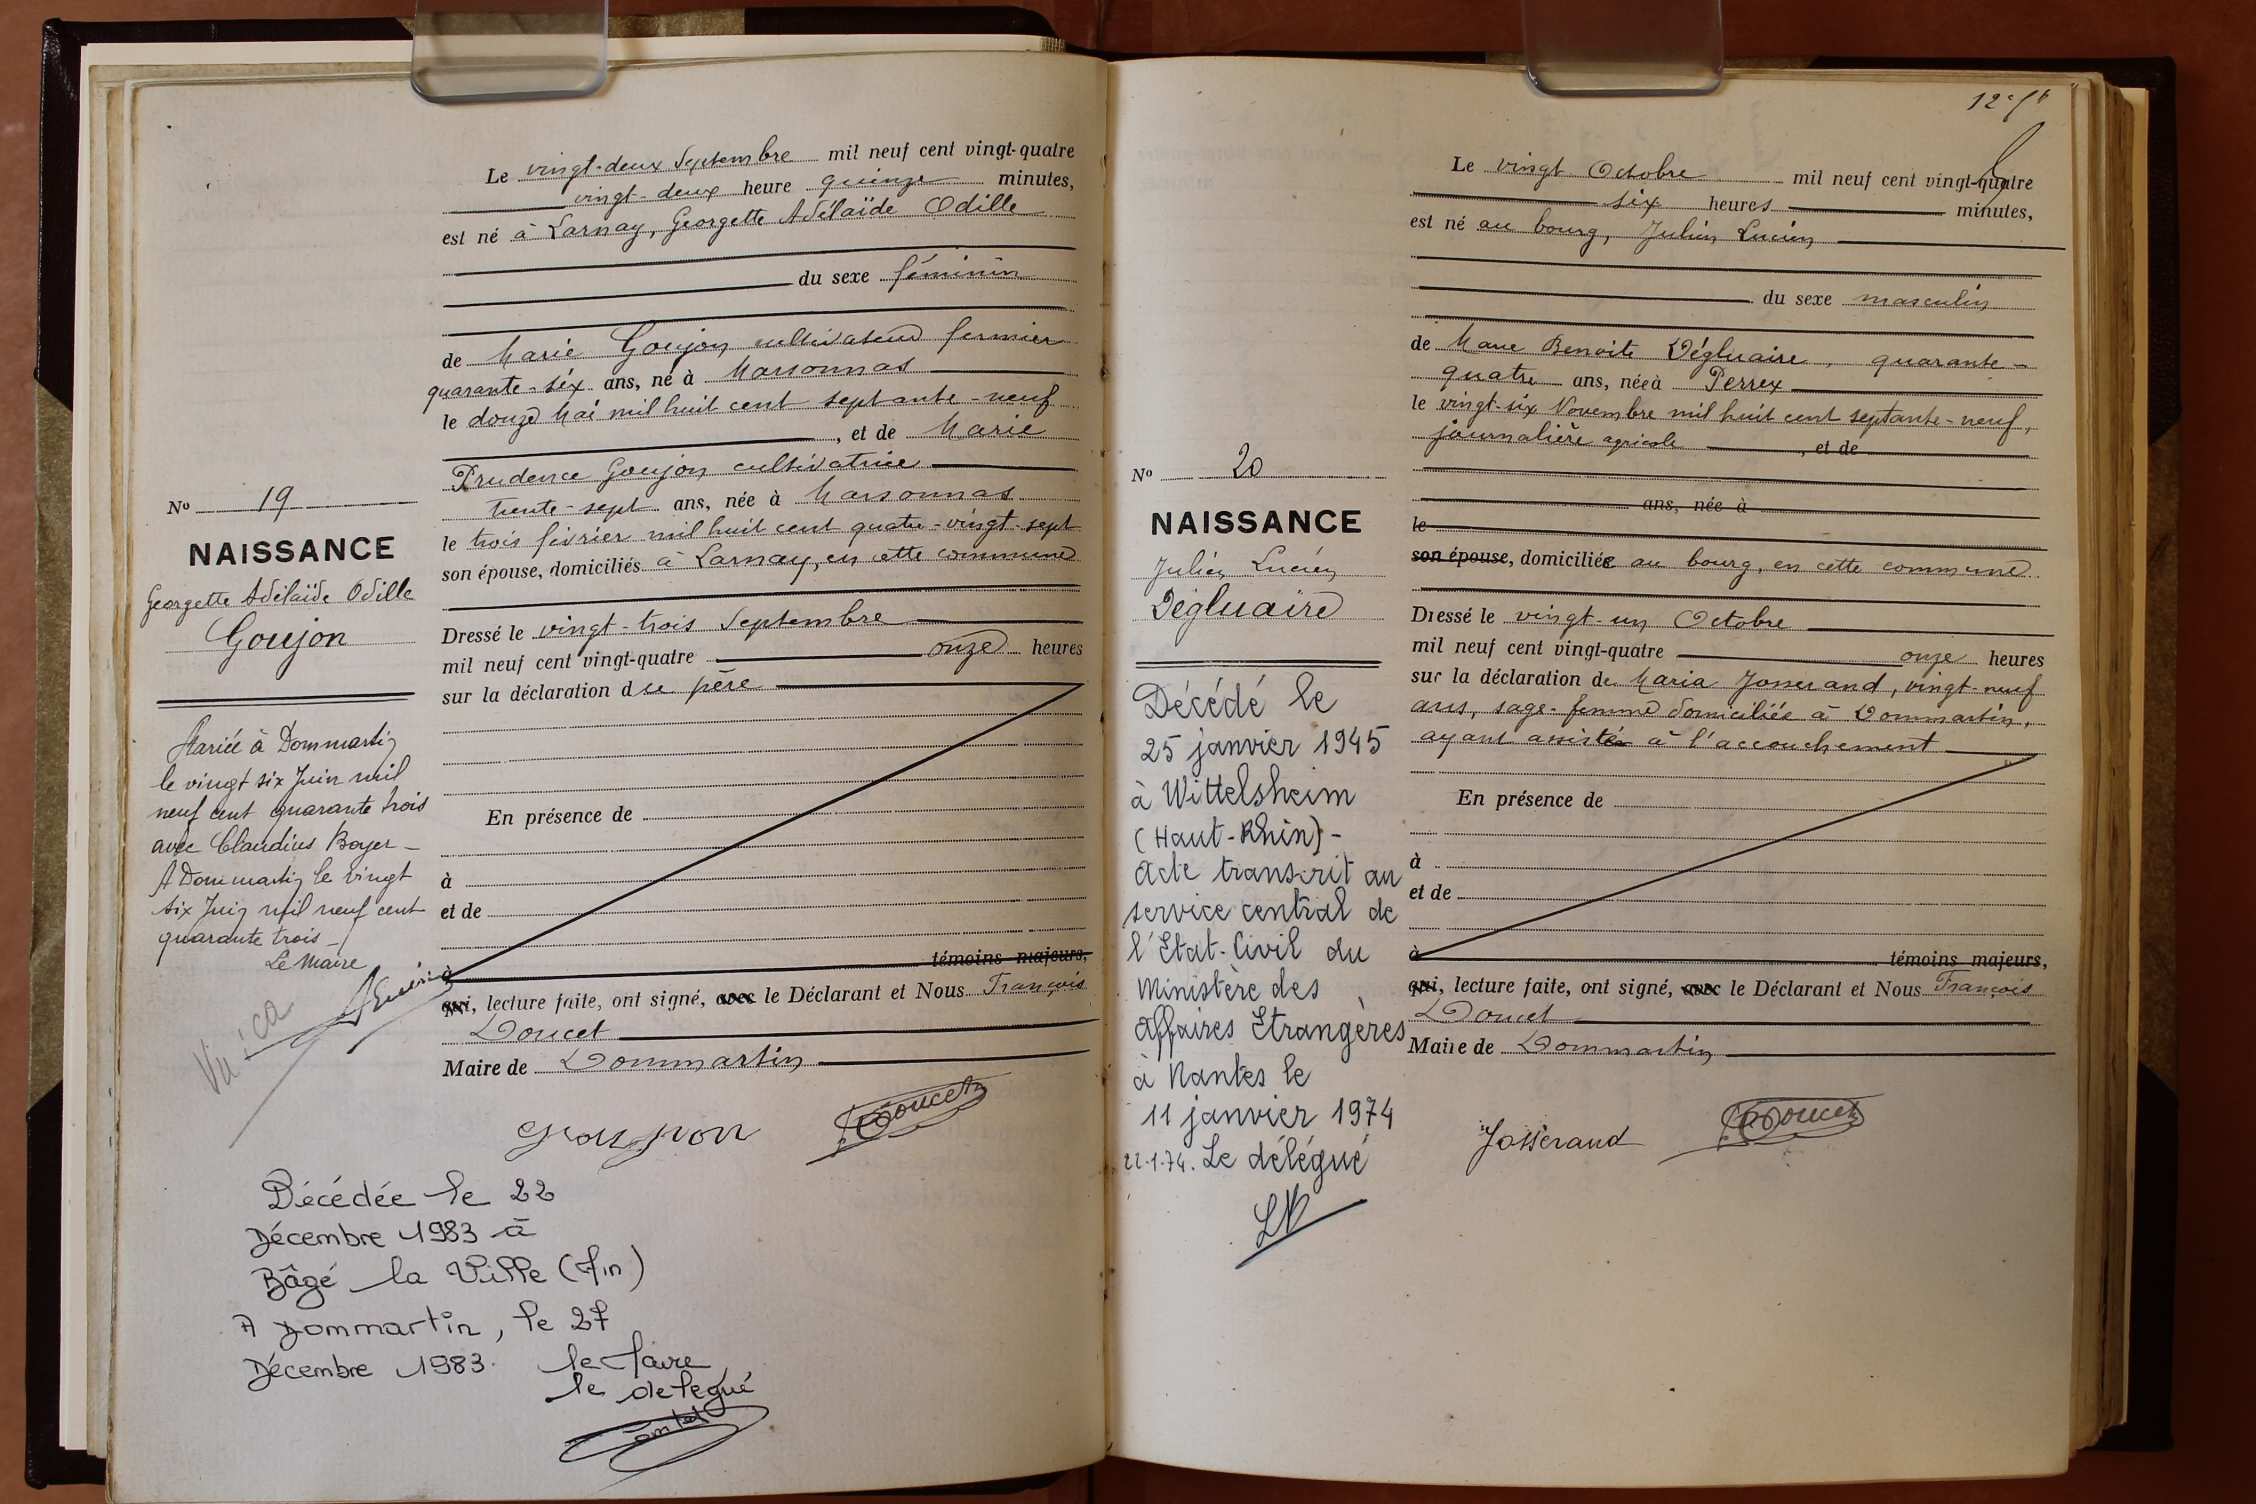 Le vingt-deux Septembre mil neuf cent vingt-quatre
vingt-deux heure quinze minutes,
est né à Larnay, Georgette Adélaïde Odille
du sexe féminin
de Marie Goujon cultivateur fermier
quarante-six ans, né à Marsonnas
le douze Mai mil huit cent septante-neuf
, et de Marie
Prudence Goujon cultivatrice
trente-sept ans, née à Marsonnas
le trois février mil huit cent quatre-vingt-sept
son épouse, domiciliés à Larnay, en cette commune
Dressé le vingt-trois Septembre
mil neuf cent vingt-quatre onze heures
sur la déclaration du père
En présence de
à
et de
à témoins majeurs,
qui, lecture faite, ont signé, avec le Déclarant et Nous François
Doucet
Maire de Dommartin
Goujon Doucet
No 19
NAISSANCE
Georgette Adélaïde Odille
Goujon
Mariée à Dommartin
le vingt six Juin mil
neuf cent quarante trois
avec Claudius Boyer -
A Dommartin le vingt
six Juin mil neuf cent
quarante trois -
Le Maire
Décédée le 22
Décembre 1983 à
Bâgé la Ville (Ain)
A Dommartin, le 27
Décembre 1983. le Maire
le délégué
12e f
Le vingt Octobre mil neuf cent vingt-quatre
six heures minutes,
est né au bourg, Julien Lucien
du sexe masculin
de Marie Benoite Dégluaire, quarante-
quatre ans, née à Perrex
le vingt-six Novembre mil huit cent septante-neuf,
journalière agricole , et de
ans, née à
le
son épouse, domiciliée au bourg, en cette commune
Dressé le vingt-un Octobre
mil neuf cent vingt-quatre onze heures
sur la déclaration de Maria Josserand, vingt-neuf
ans, sage-femme domiciliée à Dommartin,
ayant assisté à l'accouchement
En présence de
à
et de
à témoins majeurs,
qui, lecture faite, ont signé, avec le Déclarant et Nous François
Doucet
Maire de Dommartin
Josserand Doucet
No 20
NAISSANCE
Julien Lucien
Dégluaire
Décédé le
25 janvier 1945
à Wittelsheim
(Haut-Rhin)-
Acte transcrit au
service central de
l'Etat-Civil du
Ministère des
Affaires Etrangères
à Nantes le
11 janvier 1974
22.1.74. Le délégué